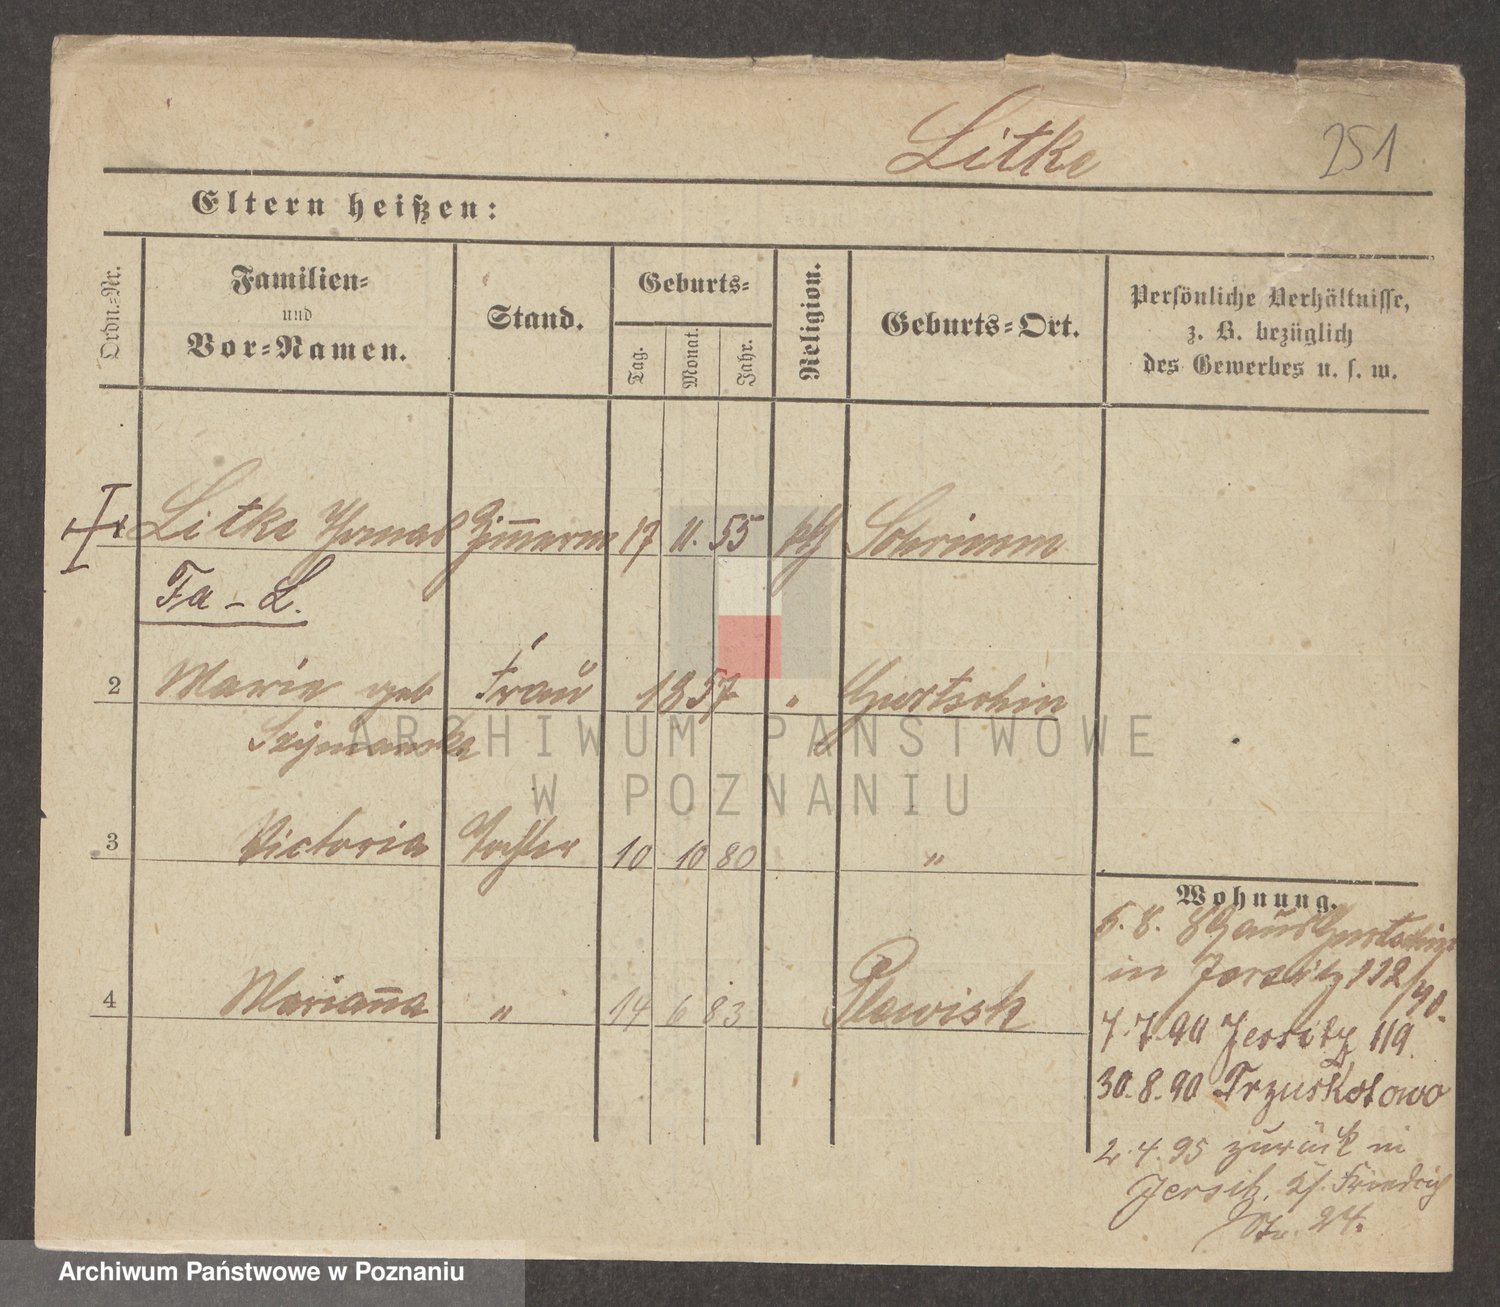 Litke
251
Eltern heißen:
Ordn.=Nr.
Familien=
und
Vor=Namen.
Stand.
Geburts=
Tag.
Monat.
Jahr.
Religion.
Geburts=Ort.
Persönliche Verhältnisse,
z. B. bezüglich
des Gewerbes u. s. w.
Litke Thomas Zimmerm 17 11. 55 Schrimm
Fa - L.
2 Marie geb Frau 1857 " Gurtschin
Szymanska
3 Victoria Tochter 10 10 80 "
4 Marianna " 14 6 83 Plewisk
Wohnung.
6. 8. 89 aus Gurtschin
in Jersitz 112/90.
7.7.90 Jersitz 119.
30.8.90 Trzuskotowo
2.4.95 zurück in
Jersitz, Friedrich
Str. 24.
ARCHIWUM PAŃSTWOWE
W POZNANIU
Archiwum Państwowe w Poznaniu